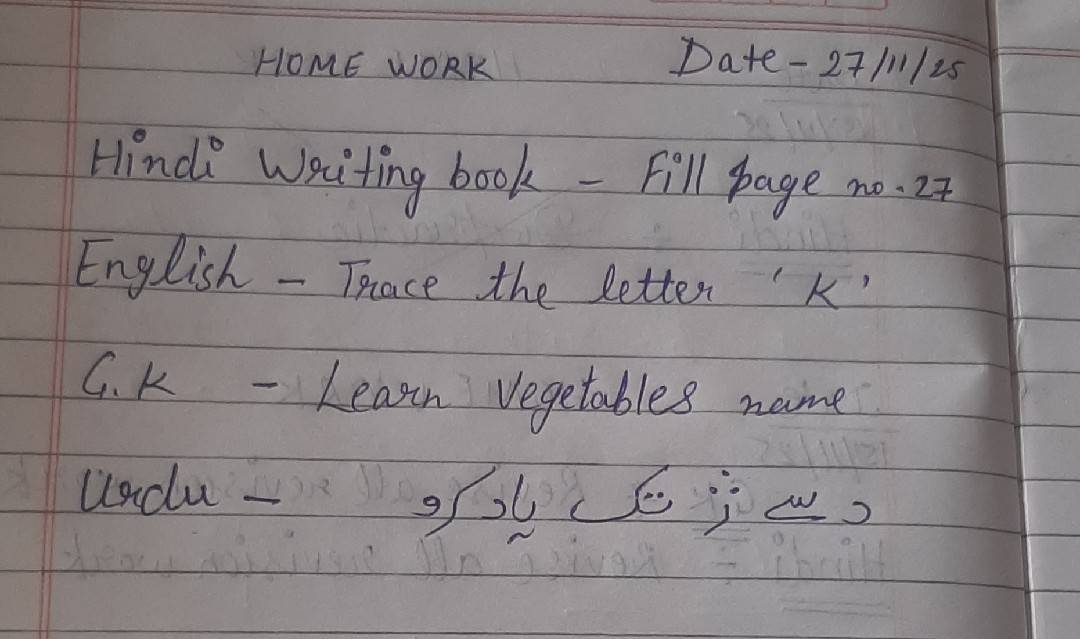 HOME WORK Date - 27/11/25
Hindi Writing book - Fill page no. 27
English - Trace the letter 'K'
G.K - Learn Vegetables name
Urdu - د سے ز تک یاد کرو